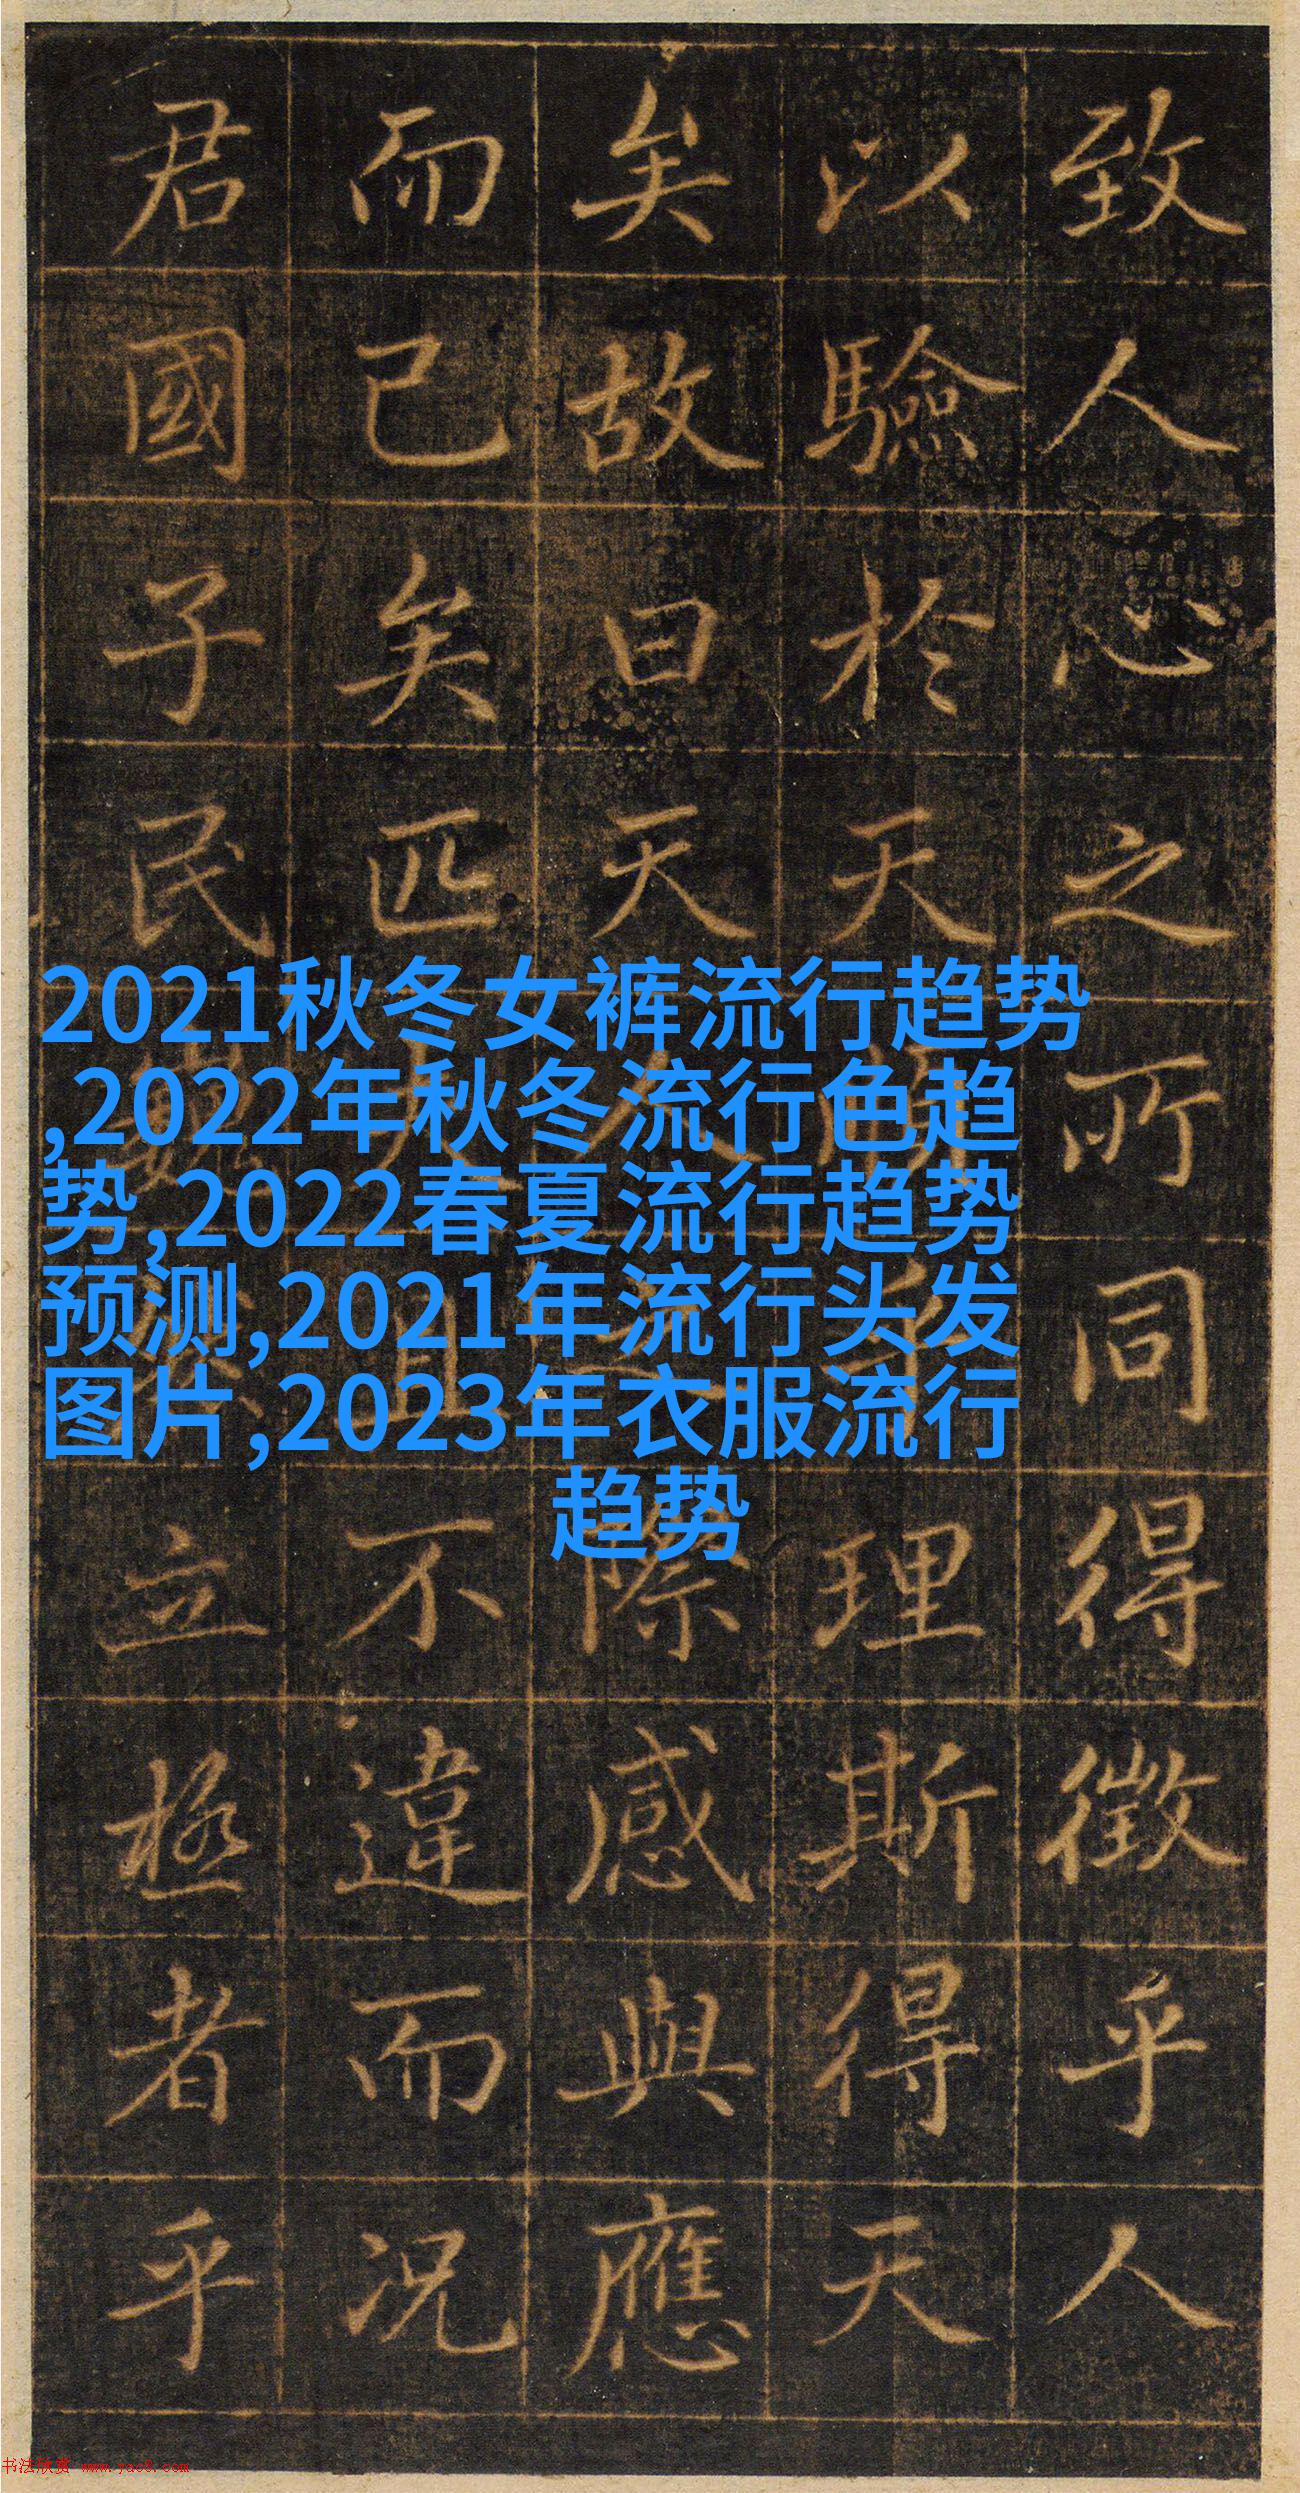 致人心之所同得徵乎人
以驗於天理斯得天
矣故曰天人之際感與應
而已矣匹夫且不違而況
君國子民立極者乎
2021秋冬女裤流行趋势
,2022年秋冬流行色趋
势,2022春夏流行趋势
预测,2021年流行头发
图片,2023年衣服流行
趋势
书法欣赏 www.yac8.com